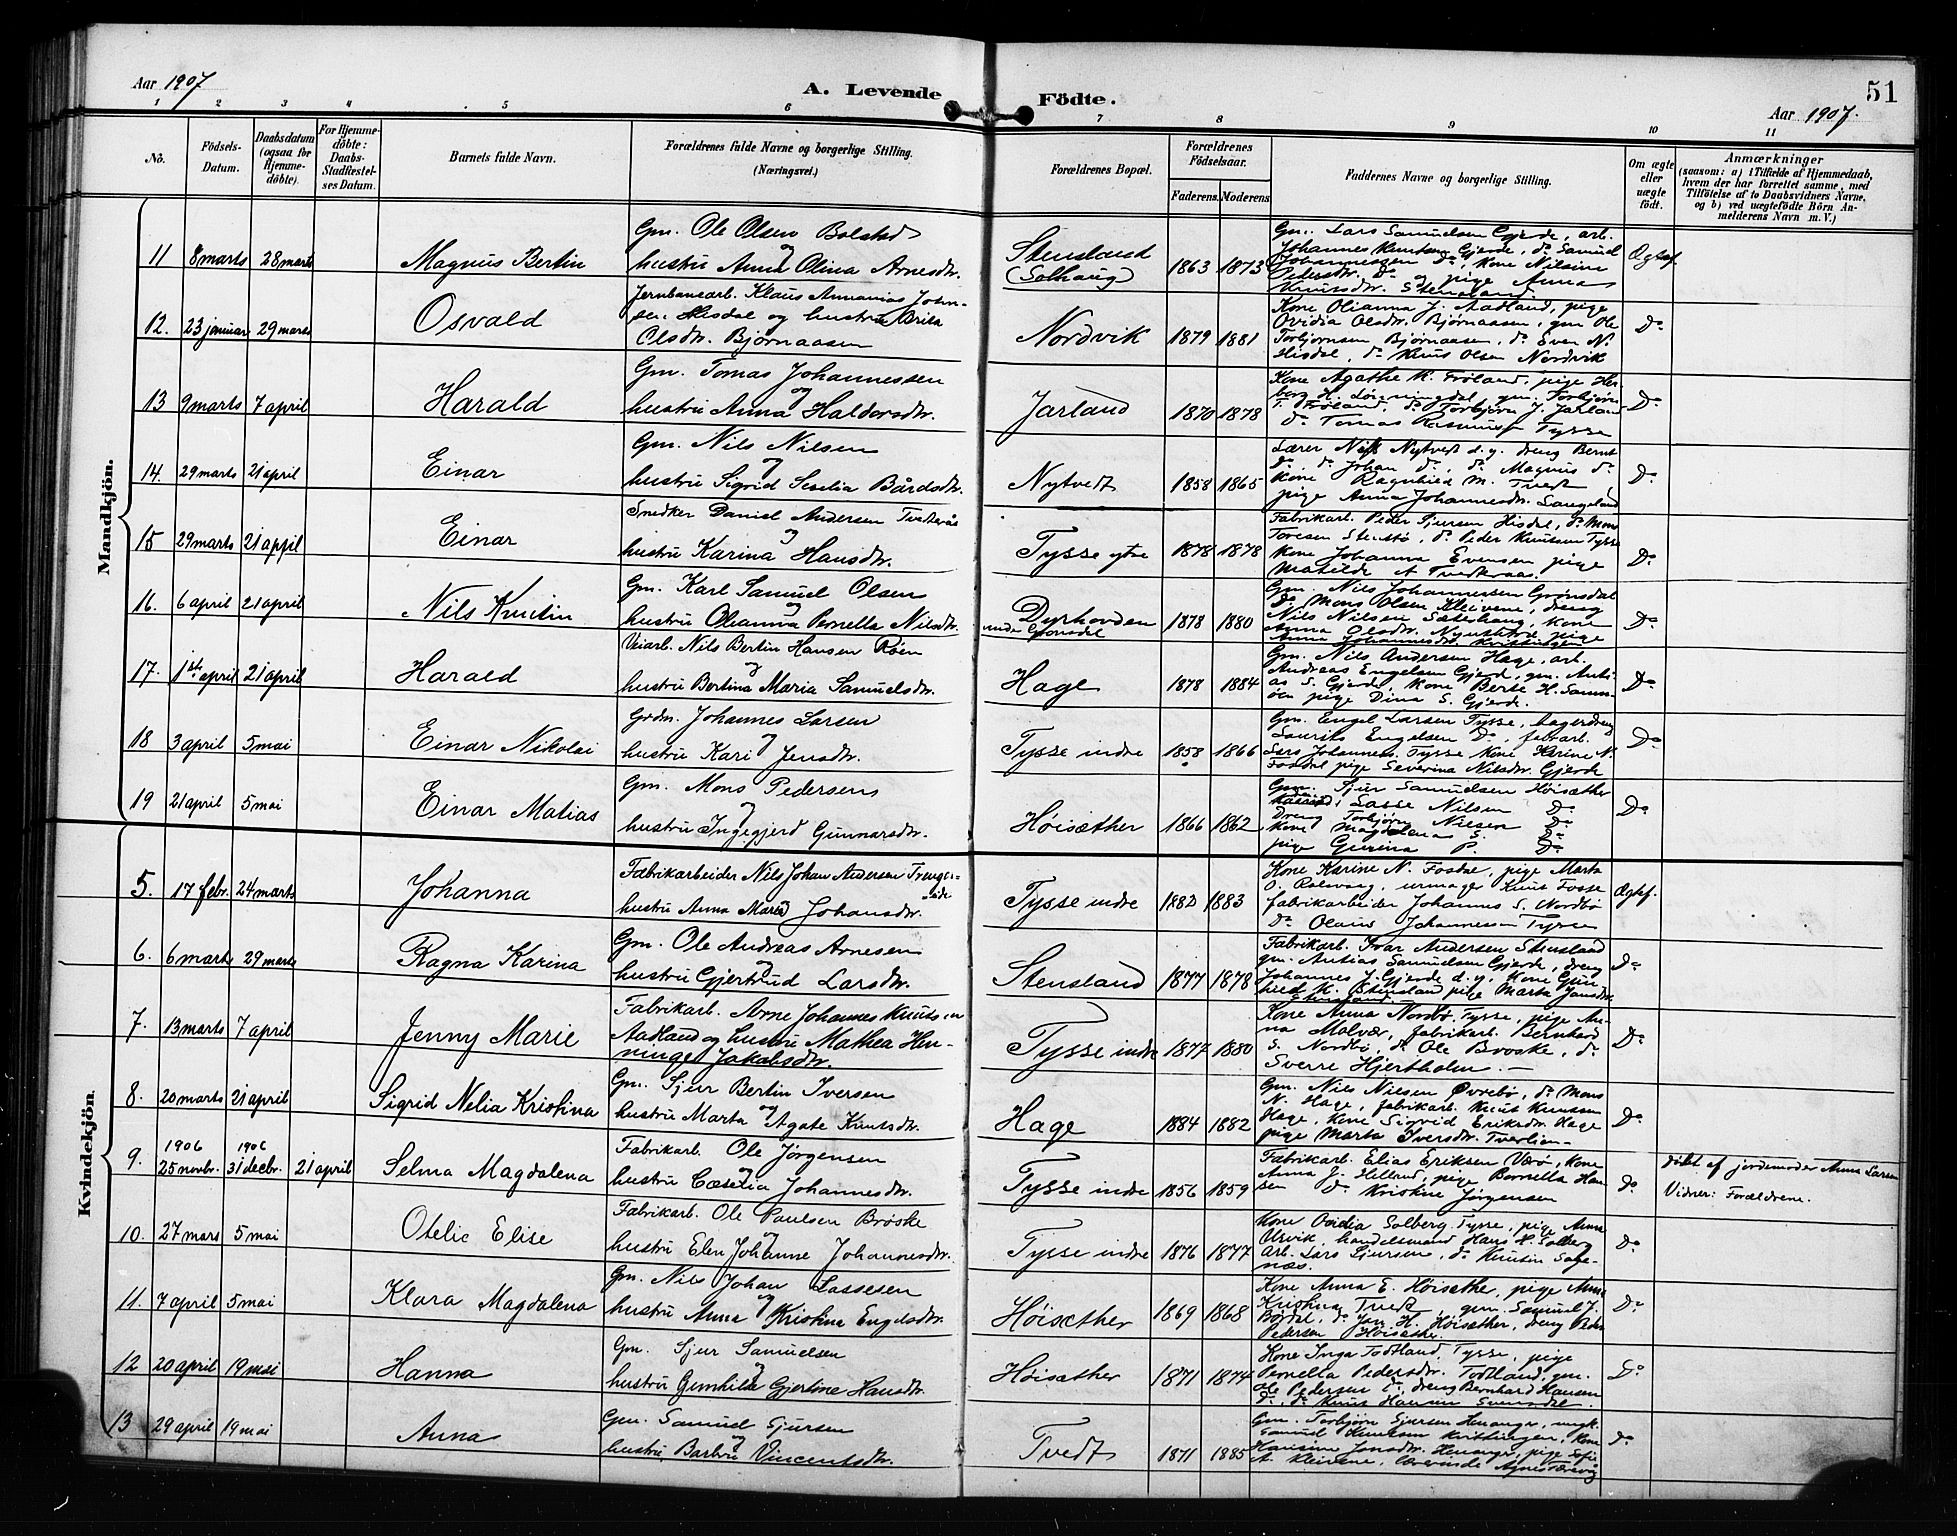 Aar 1907
A. Levende Födte.
51
Aar 1907.
1 2 3 4 5 6 7 8 9 10 11
No.
Födsels-Datum.
Daabsdatum (ogsaa for Hjemmedöbte).
For Hjemmedöbte: Daabs-Stadfæstelses Datum.
Barnets fulde Navn.
Forældrenes fulde Navne og borgerlige Stilling. (Næringsvei.)
Forældrenes Bopæl.
Forældrenes Födselsaar.
Faderens. Moderens.
Faddernes Navne og borgerlige Stilling.
Om ægte eller uægte født.
Anmærkninger
(saasom: a) i Tilfælde af Hjemmedaab, hvem der har forrettet samme, med Tilføielse af to Daabsvidners Navne, og b) ved uægtefødte Börn Anmelderens Navn m. V.)
Mandkjön.
11 8 marts 28 marts Magnus Bertin
Gm. Ole Olsen Bolstad og
hustru Anna Olina Arnesdtr.
Stensland (Solhaug) 1863 1873
Gm. Lars Samuelsen Gjerde, arb.
Johannes Knutsen Gjerde, do Samuel
Johannessen do, Kone Nilsine
Pedersdtr. do og pige Anna
Knutsdtr. Stensland
Ægtef.
12. 23 januar 29 marts Osvald
Jernbanearb. Klaus Annanias John-
sen Hisdal og hustru Brita
Olsdtr. Bjørnaasen
Nordvik 1879 1881
Kone Olianna J. Aadland, pige
Ovidia Olsdtr. Bjørnaasen, gm Ole
Torbjørnsen Bjørnaasen, do Sven N.
Hisdal, do Knut Olsen Nordvik
Do
13 9 marts 7 april Harald
Gm. Tomas Johannessen og
hustru Anna Haldorsdtr.
Jarland 1870 1878
Kone Agathe K. Frøland, pige Her-
borg H. Lønningdal, gm. Torbjørn
T. Frøland, do Torbjørn J. Jarland
do Tomas Rasmussen Tysse
Do
14. 29 marts 21 april Einar
Gm. Nils Nilsen og
hustru Sigrid Seselia Bårdsdtr.
Nytvedt 1858 1865
Lærer Nils Nytvedt d.y. dreng Bernt
do, do Johan do, do Magnus do
Kone Ragnhild M. Tvedt
pige Anna Johannesdtr. Langeland
Do
15 29 marts 21 april Einar
Snedker Daniel Andersen Tvedteraas og
hustru Karina Hansdtr.
Tysse ytre 1878 1878
Fabrikarb. Peder Sjursen Hisdal, do Mons
Toresen Stenstø, do Peder Knutsen Tysse
Kone Johanna Evensen pige
Matilde A Tvedteraas.
Do
16. 6 april 21 april Nils Knutin
Gm. Karl Samuel Olsen og
hustru Olianna Pernella Nilsdtr.
Dyrhovden under Grønsdal 1878 1880
Gm. Nils Johannessen Grønsdal
do Mons Olsen Kleivene, dreng
Nils Nilsen Sæterhaug, Kone
Anna Olsdtr. pige
Anna Johannesdtr.
Do
17. 1ste april 21 april Harald
Veiarb. Nils Bertin Hansen Røen og
hustru Bertina Maria Samuelsdtr.
Hage 1878 1884
Gm. Nils Andersen Hage, arb.
Andreas Engelsen Gjerde, gm. Anti-
as S. Gjerde, Kone Berte H. Samn-
øen pige Dina S. Gjerde.
Do
18 3 april 5 mai Einar Nikolai
Grdm. Johannes Larsen og
hustru Kari Jensdtr.
Tysse indre 1858 1866
Gm. Engel Larsen Tysse, bagerdreng
Laurits Engelsen do, fabarb.
Lars Johannes. Tysse Kone Karine N.
Fosdal pige Severina Nilsdtr. Gjerde
Do
19 21 april 5 mai Einar Matias
Gm. Mons Pedersen og
hustru Ingegjerd Gunnarsdtr.
Høisæther 1866 1862
Gm. Sjur Samuelsen Høisæther
Lasse Nilsen do
Dreng Torbjørn Nilsen do
Kone Magdalena S. do
pige Gurina P. do
Do
Kvindekjön.
5. 17 febr. 24 marts Johanna
Fabrikarbeider Nils Johan Andersen Trenger-
eide hustru Anna Maria Johansdtr.
Tysse indre 1882 1883
Kone Karine N. Fosdal, pige Marta
O. Rolsvaag, urmager Knut Fosse
fabrikarbeider Johannes S. Nordbø
do Olaus Johannessen Tysse
Ægtef.
6. 6 marts 29 marts Ragna Karina
Gm. Ole Andreas Arnesen og
hustru Gjertrud Larsdtr.
Stensland 1877 1878
Fabrikarb. Ivar Andersen Stensland
gm. Antias Samuelsen Gjerde, dreng
Johannes J. Gjerde d.y. Kone Gun-
hild K. Stensland pige Marta Jansdtr.
Stensland
Do
7. 13 marts 7 april Jenny Marie
Fabrikarb. Arne Johannes Knutsen
Aadland og hustru Mathea Hen-
ninge Jakobsdtr.
Tysse indre 1877 1880
Kone Anna Nordbø Tysse, pige An-
na Malvær, fabrikarb. Bernhard
S. Nordbø, do Ole Broske, do
Sverre Hjertholm. —
Do
8. 20 marts 21 april Sigrid Nelia Kristina
Gm. Sjur Bertin Iversen og
hustru Marta Agate Knutsdtr.
Hage 1884 1882
Gm. Nils Nilsen Øvrebø, do Mons
N. Hage, fabrikarb. Knut Knutsen
Hage, Kone Sigrid Eriksdtr. Hage
pige Marta Iversdtr. Tverlien
Do
9. 1906 25 novbr. 1906 31 decbr. 21 april Selma Magdalena
Fabrikarb. Ole Jørgensen og
hustru Cæselia Johannesdtr.
Tysse indre 1856 1859
Fabrikarb. Elias Eriksen Værø, Kone
Anna J. Helland, pige Pernella Han-
sen do Kristine Jørgensen
Do
døbt af jordemoder Anna Larsen
Vidner: Forældrene.
10. 27 mars 5 mai Otelie Elise
Fabrikarb. Ole Paulsen Brøske og
hustru Elen Johanne Johannesdtr.
Tysse indre 1876 1877
Kone Ovidia Solberg Tysse, pige Anna
Ulsvik, handelsmand Hans H. Solberg
Arb. Lars Sjursen, do Knutin Sage-
næs.
Do
11. 7 april 5 mai Klara Magdalena
Gm. Nils Johan Lassesen og
hustru Anna Kristina Engelsdtr.
Høisæther 1869 1868
Kone Anna E. Høisæther, pige Anna
Kristina Tvedt, gm. Samuel J.
Børdal, do Jan H. Høisæther, dreng Peder
Pedersen Høisæther.
Do
12 20 april 19 mai Hanna
Gm. Sjur Samuelsen og
hustru Gunhilda Gjertine Hansdtr.
Høisæther 1871 1874
Kone Inga Todtland Tysse, pige
Pernella Pedersdtr. Todtland, gm.
Ole Pedersen do, dreng Bernhard Hansen
do, do Knut Hansen
Do
13 29 april 19 mai Anna
Gm. Samuel Sjursen og
hustru Barbru Vincentsdtr.
Tvedt 1871 1885
Gm. Torbjørn Sjursen Henanger, ungk.
Samuel Knutsen Kvitingen, Kone
Hansine Jonsdtr. Henanger, pige Sofie
A. Kleivene, lærerinde Agnes
Do